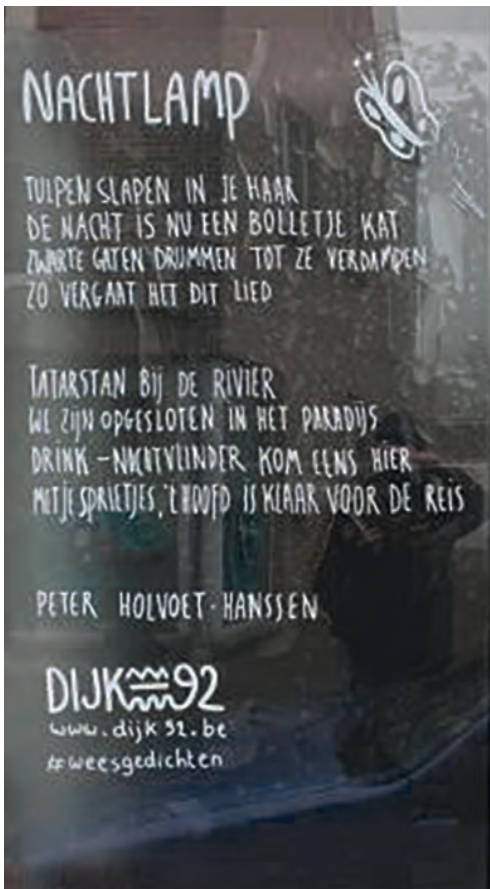 NACHTLAMP
TULPEN SLAPEN IN JE HAAR
DE NACHT IS NU EEN BOLLETJE KAT
ZWARTE GATEN DRUMMEN TOT ZE VERDAMPEN
ZO VERGAAT HET DIT LIED
TATARSTAN BIJ DE RIVIER
WE ZIJN OPGESLOTEN IN HET PARADIJS
DRINK - NACHTVLINDER KOM EENS HIER
MET JE SPRIETJES, 'T HOOFD IS KLAAR VOOR DE REIS
PETER HOLVOET-HANSSEN
DIJK 92
www.dijk92.be
#weesgedichten